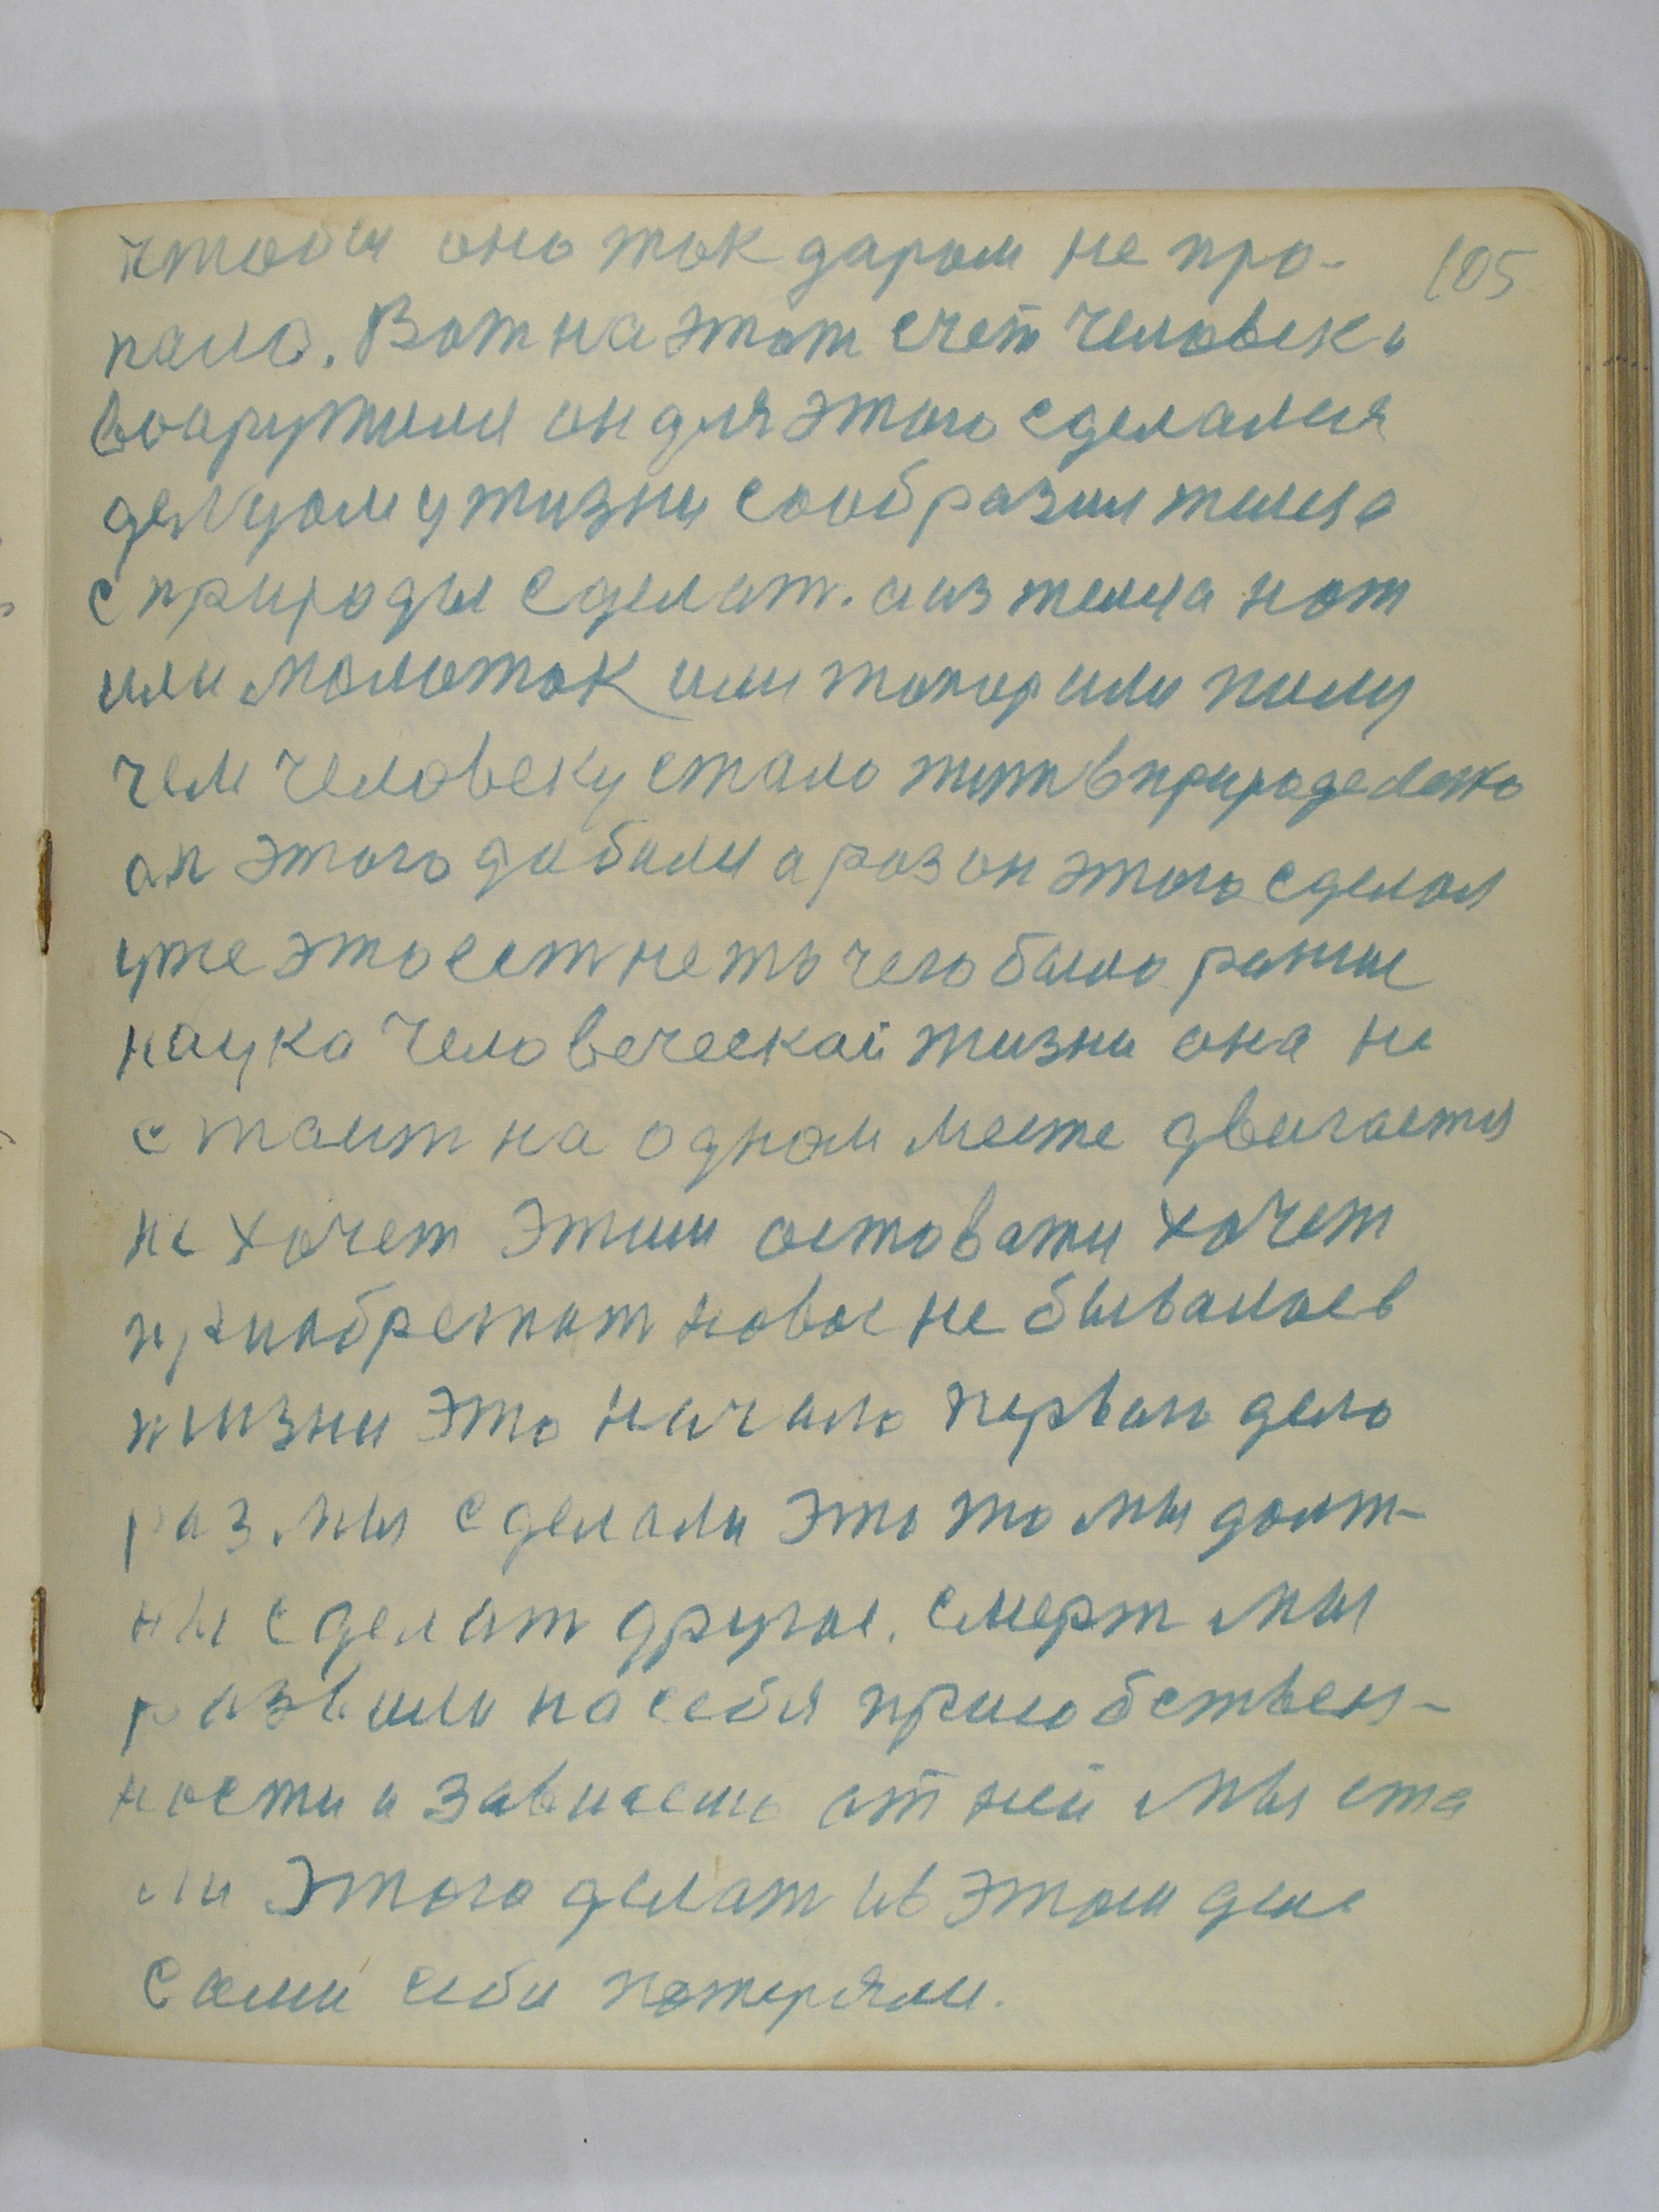 чтобы оно так даром не про- 105
пало. Вот на этот счет человек и
вооружили он для этого сделался
делцом у жизни сообразил жилеа
с природы сделат. а из желеа нож
или молоток или топор или пилу
чем человеку стало жит в природе легко
он этого добили а раз он этого сделал
уже это сет не то чего было ранше
наука человеческай жизни она не
стаит на одном месте двигается
не хочет этим оставати хочет
приабретат новое не бывалое в
жизни это начало первым дело
раз мы сделали это то мы долж-
ны сделат другое. смерт мы
развили на себя присобствен-
ности и зависемо от ней мы ста
ли этого делат и в этом деле
сами себи потеряли.